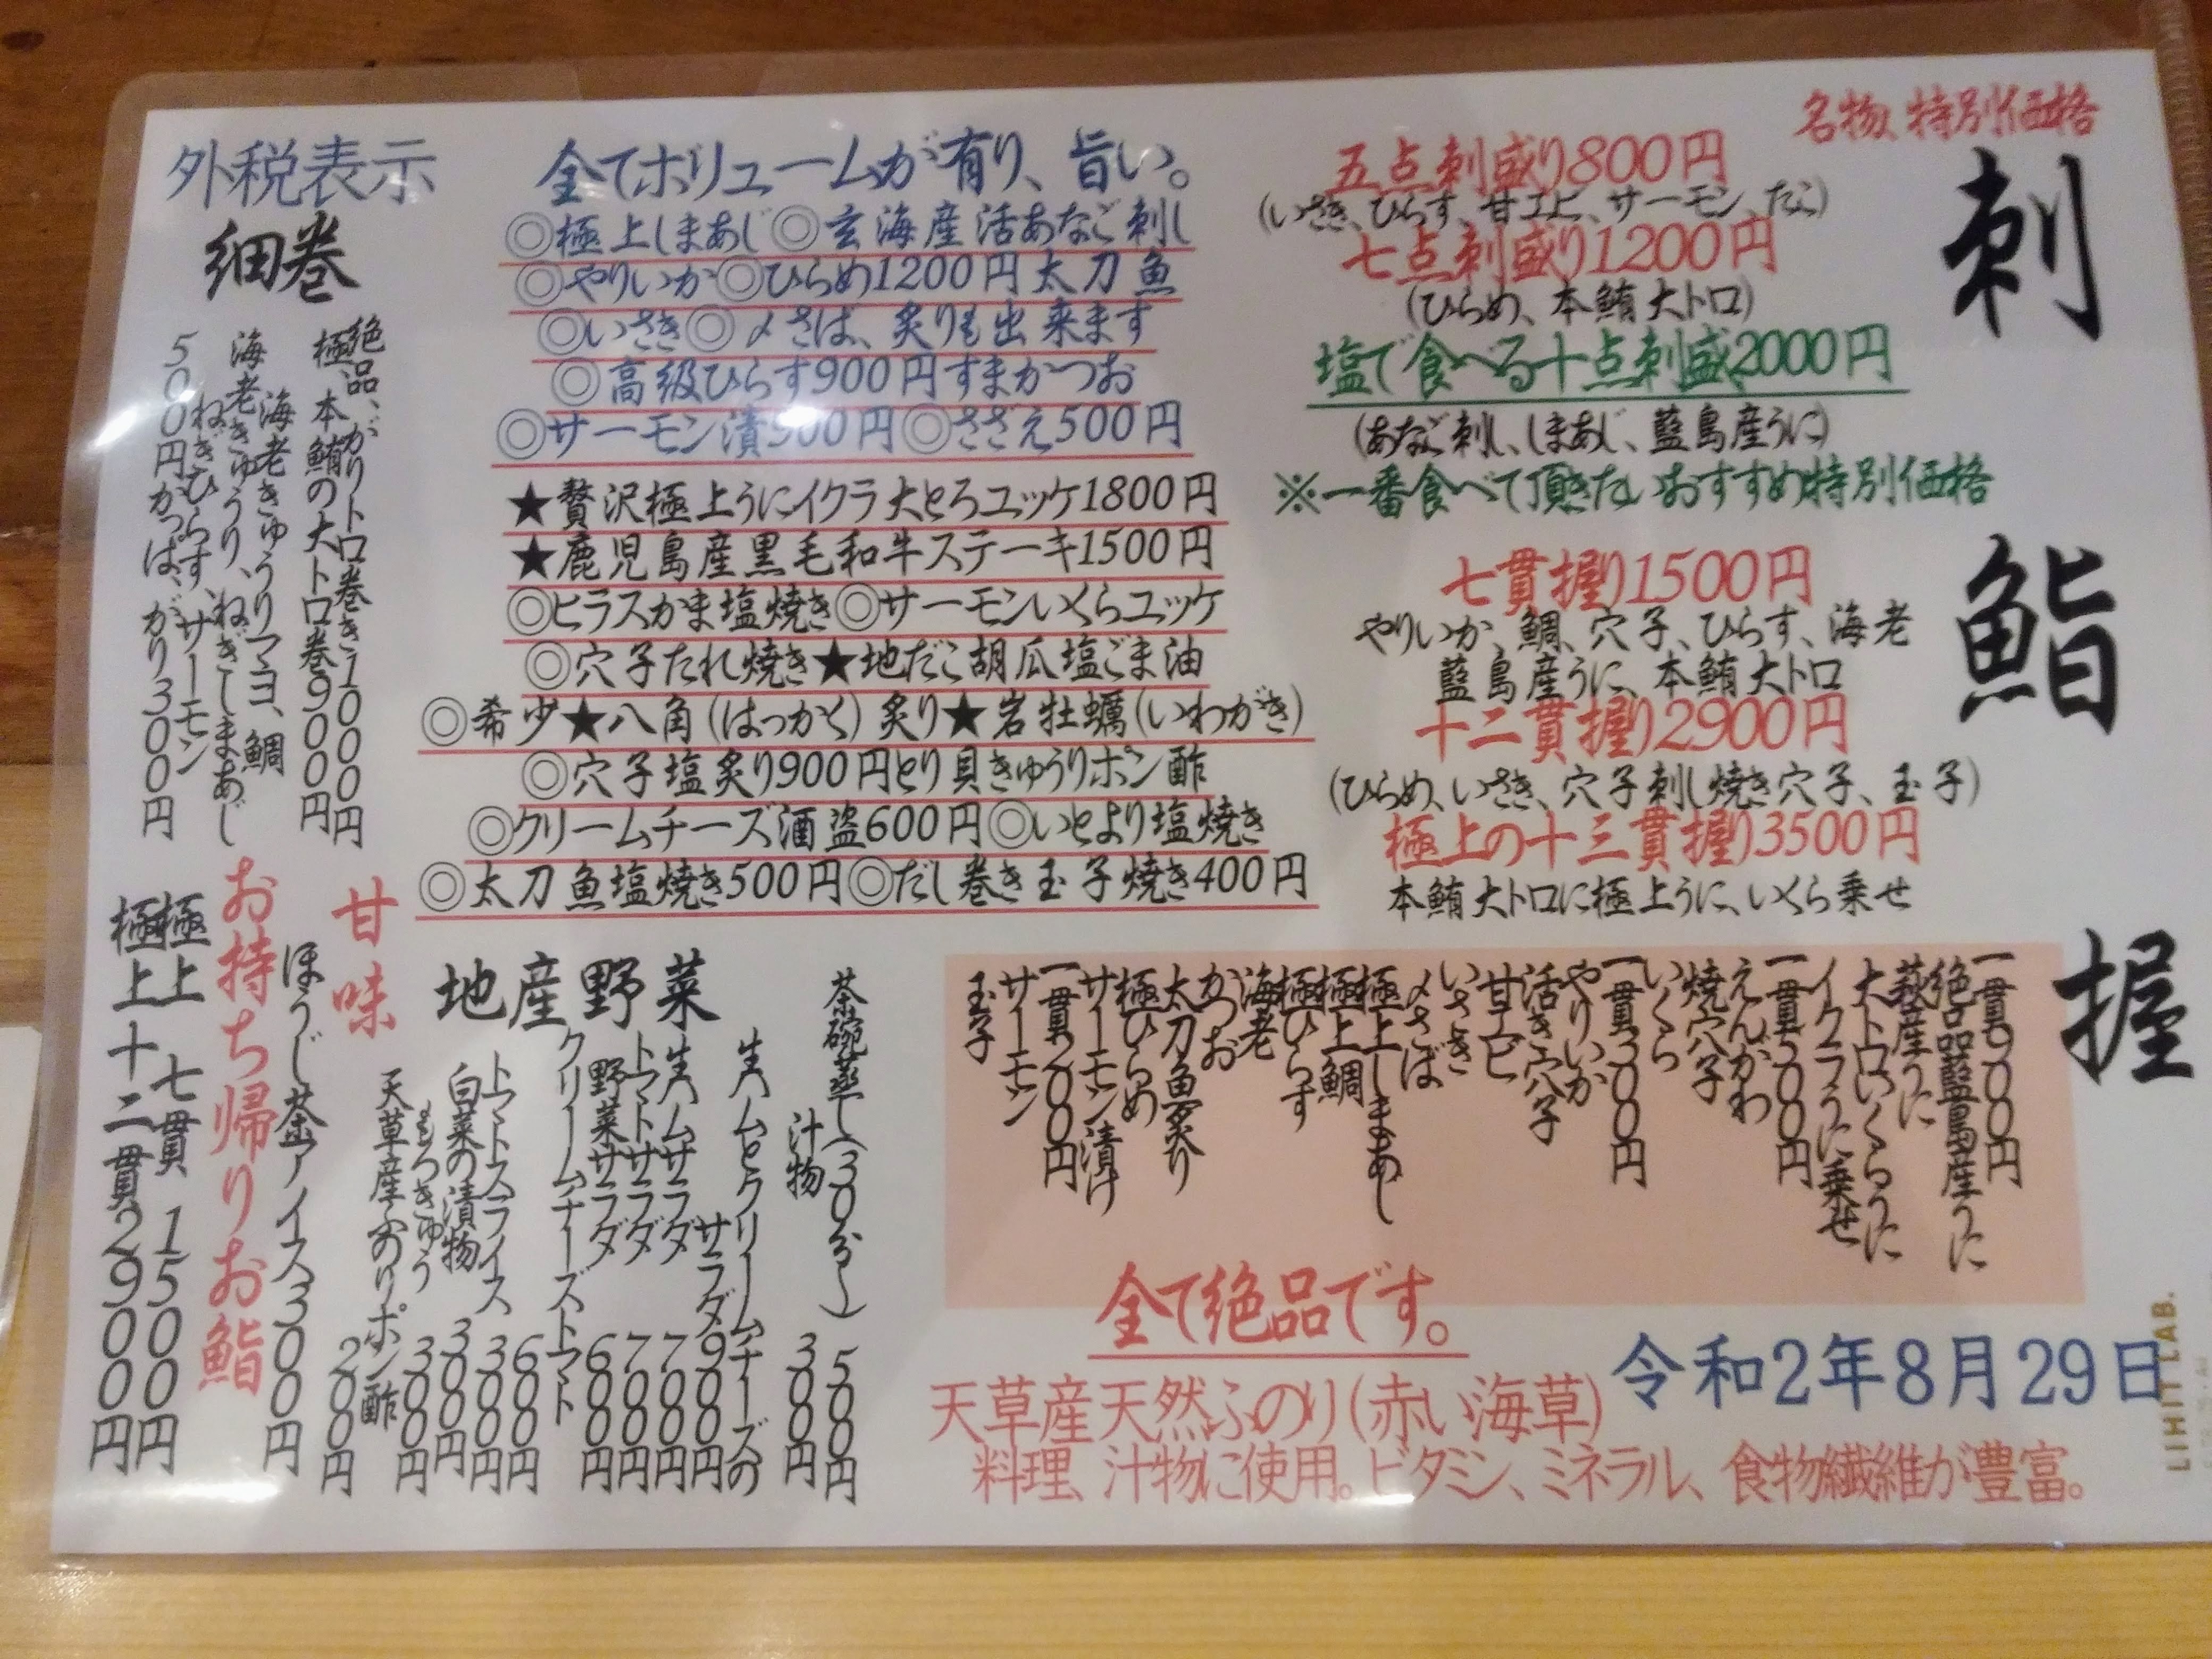 名物、特別価格
刺
五点刺盛り800円
(いさき、ひらす、甘エビ、サーモン、たこ)
七点刺盛り1200円
(ひらめ、本鮪大トロ)
塩で食べる十点刺盛2000円
(あなご刺し、しまあじ、藍島産うに)
※一番食べて頂きたいおすすめ特別価格
鮨
七貫握り1500円
やりいか、鯛、穴子、ひらす、海老
藍島産うに、本鮪大トロ
十二貫握り2900円
(ひらめ、いさき、穴子刺し焼き穴子、玉子)
極上の十三貫握り3500円
本鮪大トロに極上うに、いくら乗せ
握
一貫900円
絶品藍島産うに
萩産うに
大トロいくらうに
イクラうに乗せ
一貫500円
えんがわ
焼穴子
いくら
一貫300円
やりいか
活き穴子
甘エビ
いさき
〆さば
極上しまあじ
極上鯛
極ひらす
海老
かつお
太刀魚炙り
極ひらめ
サーモン漬け
一貫200円
サーモン
玉子
全て絶品です。
令和2年8月29日
天草産天然ふのり(赤い海草)
料理、汁物に使用。ビタミン、ミネラル、食物繊維が豊富。
全てボリュームが有り、旨い。
◎極上しまあじ◎玄海産活あなご刺し
◎やりいか◎ひらめ1200円太刀魚
◎いさき◎〆さば、炙りも出来ます
◎高級ひらす900円すまかつお
◎サーモン漬500円◎さざえ500円
★贅沢極上うにイクラ大とろユッケ1800円
★鹿児島産黒毛和牛ステーキ1500円
◎ヒラスかま塩焼き◎サーモンいくらユッケ
◎穴子たれ焼き★地だこ胡瓜塩ごま油
◎希少★八角(はっかく)炙り★岩牡蠣(いわがき)
◎穴子塩炙り900円とり貝きゅうりポン酢
◎クリームチーズ酒盗600円◎いとより塩焼き
◎太刀魚塩焼き500円◎だし巻き玉子焼き400円
茶碗蒸し(30分〜) 500円
汁物 300円
地産野菜
生ハムとクリームチーズの
サラダ 900円
生ハムサラダ 700円
トマトサラダ 700円
野菜サラダ 600円
クリームチーズトマト
600円
トマトスライス 300円
白菜の漬物 300円
もろきゅう 300円
天草産ふのりポン酢
200円
外税表示
細巻
絶品、がりトロ巻き1000円
極、本鮪の大トロ巻900円
海老きゅうりマヨ、鯛
海老きゅうり、ねぎしまあじ
ねぎひらす、サーモン
500円かっぱ、がり300円
甘味
ほうじ茶アイス300円
お持ち帰りお鮨
極上 七貫 1500円
極上十二貫2900円
LIHIT LAB.